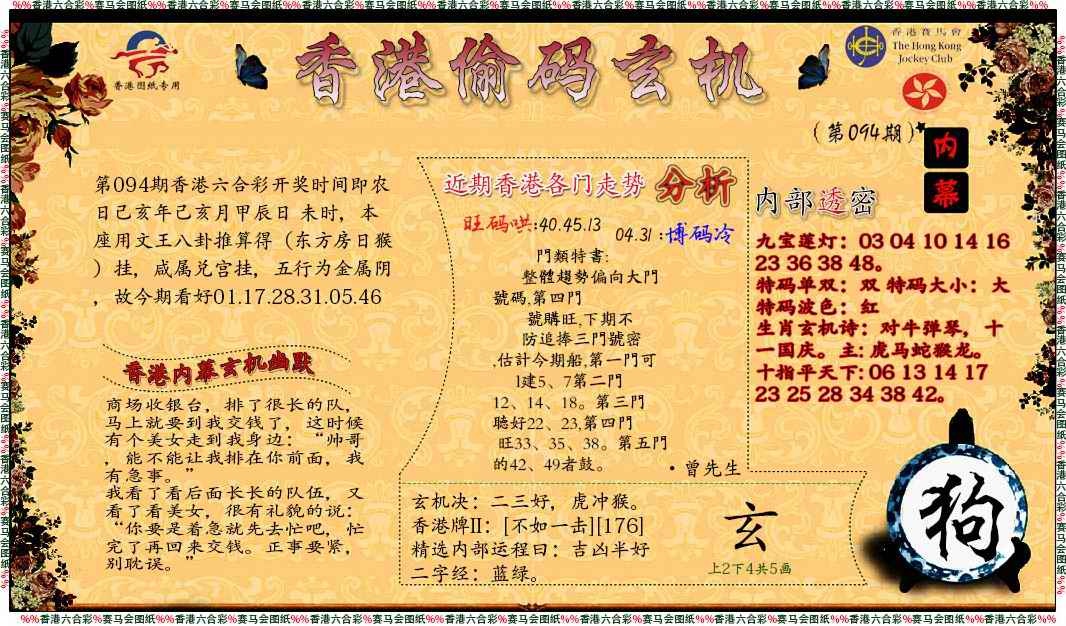 %%香港六合彩%赛马会图纸%%香港六合彩%赛马会图纸%%香港六合彩%赛马会图纸%%香港六合彩%赛马会图纸%%香港六合彩%赛马会图纸%%香港六合彩%赛马会图纸%%香港六合彩%赛马会图纸%%香港六合彩%%
香港图纸专用
香港偷码玄机
香港賽馬會
The Hong Kong
Jockey Club
(第094期)
内
幕
第094期香港六合彩开奖时间即农
日己亥年己亥月甲辰日 未时，本
座用文王八卦推算得（东方房日猴
）挂，咸属兑宫挂，五行为金属阴
，故今期看好01.17.28.31.05.46
香港内幕玄机幽默
商场收银台，排了很长的队，
马上就要到我交钱了，这时候
有个美女走到我身边：“帅哥
，能不能让我排在你前面，我
有急事。”
我看了看后面长长的队伍，又
看了看美女，很有礼貌的说：
“你要是着急就先去忙吧，忙
完了再回来交钱。正事要紧，
别耽误。”
近期香港各门走势 分析
旺码哄:40.45.13
04.31 :博码冷
門類特書:
整體趨勢偏向大門
號碼,第四門
號購旺,下期不
防追捧三門號密
,估計今期船,第一門可
1建5、7第二門
12、14、18。第三門
聰好22、23,第四門
旺33、35、38。第五門
的42、49者鼓。
·曾先生
玄机决：二三好，虎冲猴。
香港牌II：[不如一击][176]
精选内部运程曰：吉凶半好
二字经：蓝绿。
玄
上2下4共5画
内部透密
九宝莲灯：03 04 10 14 16
23 36 38 48。
特码单双：双 特码大小：大
特码波色：红
生肖玄机诗：对牛弹琴，十
一国庆。主: 虎马蛇猴龙。
十指平天下: 06 13 14 17
23 25 28 34 38 42。
狗
%%香港六合彩%赛马会图纸%%香港六合彩%赛马会图纸%%香港六合彩%赛马会图纸%%香港六合彩%赛马会图纸%%香港六合彩%赛马会图纸%%香港六合彩%赛马会图纸%%香港六合彩%赛马会图纸%%香港六合彩%%